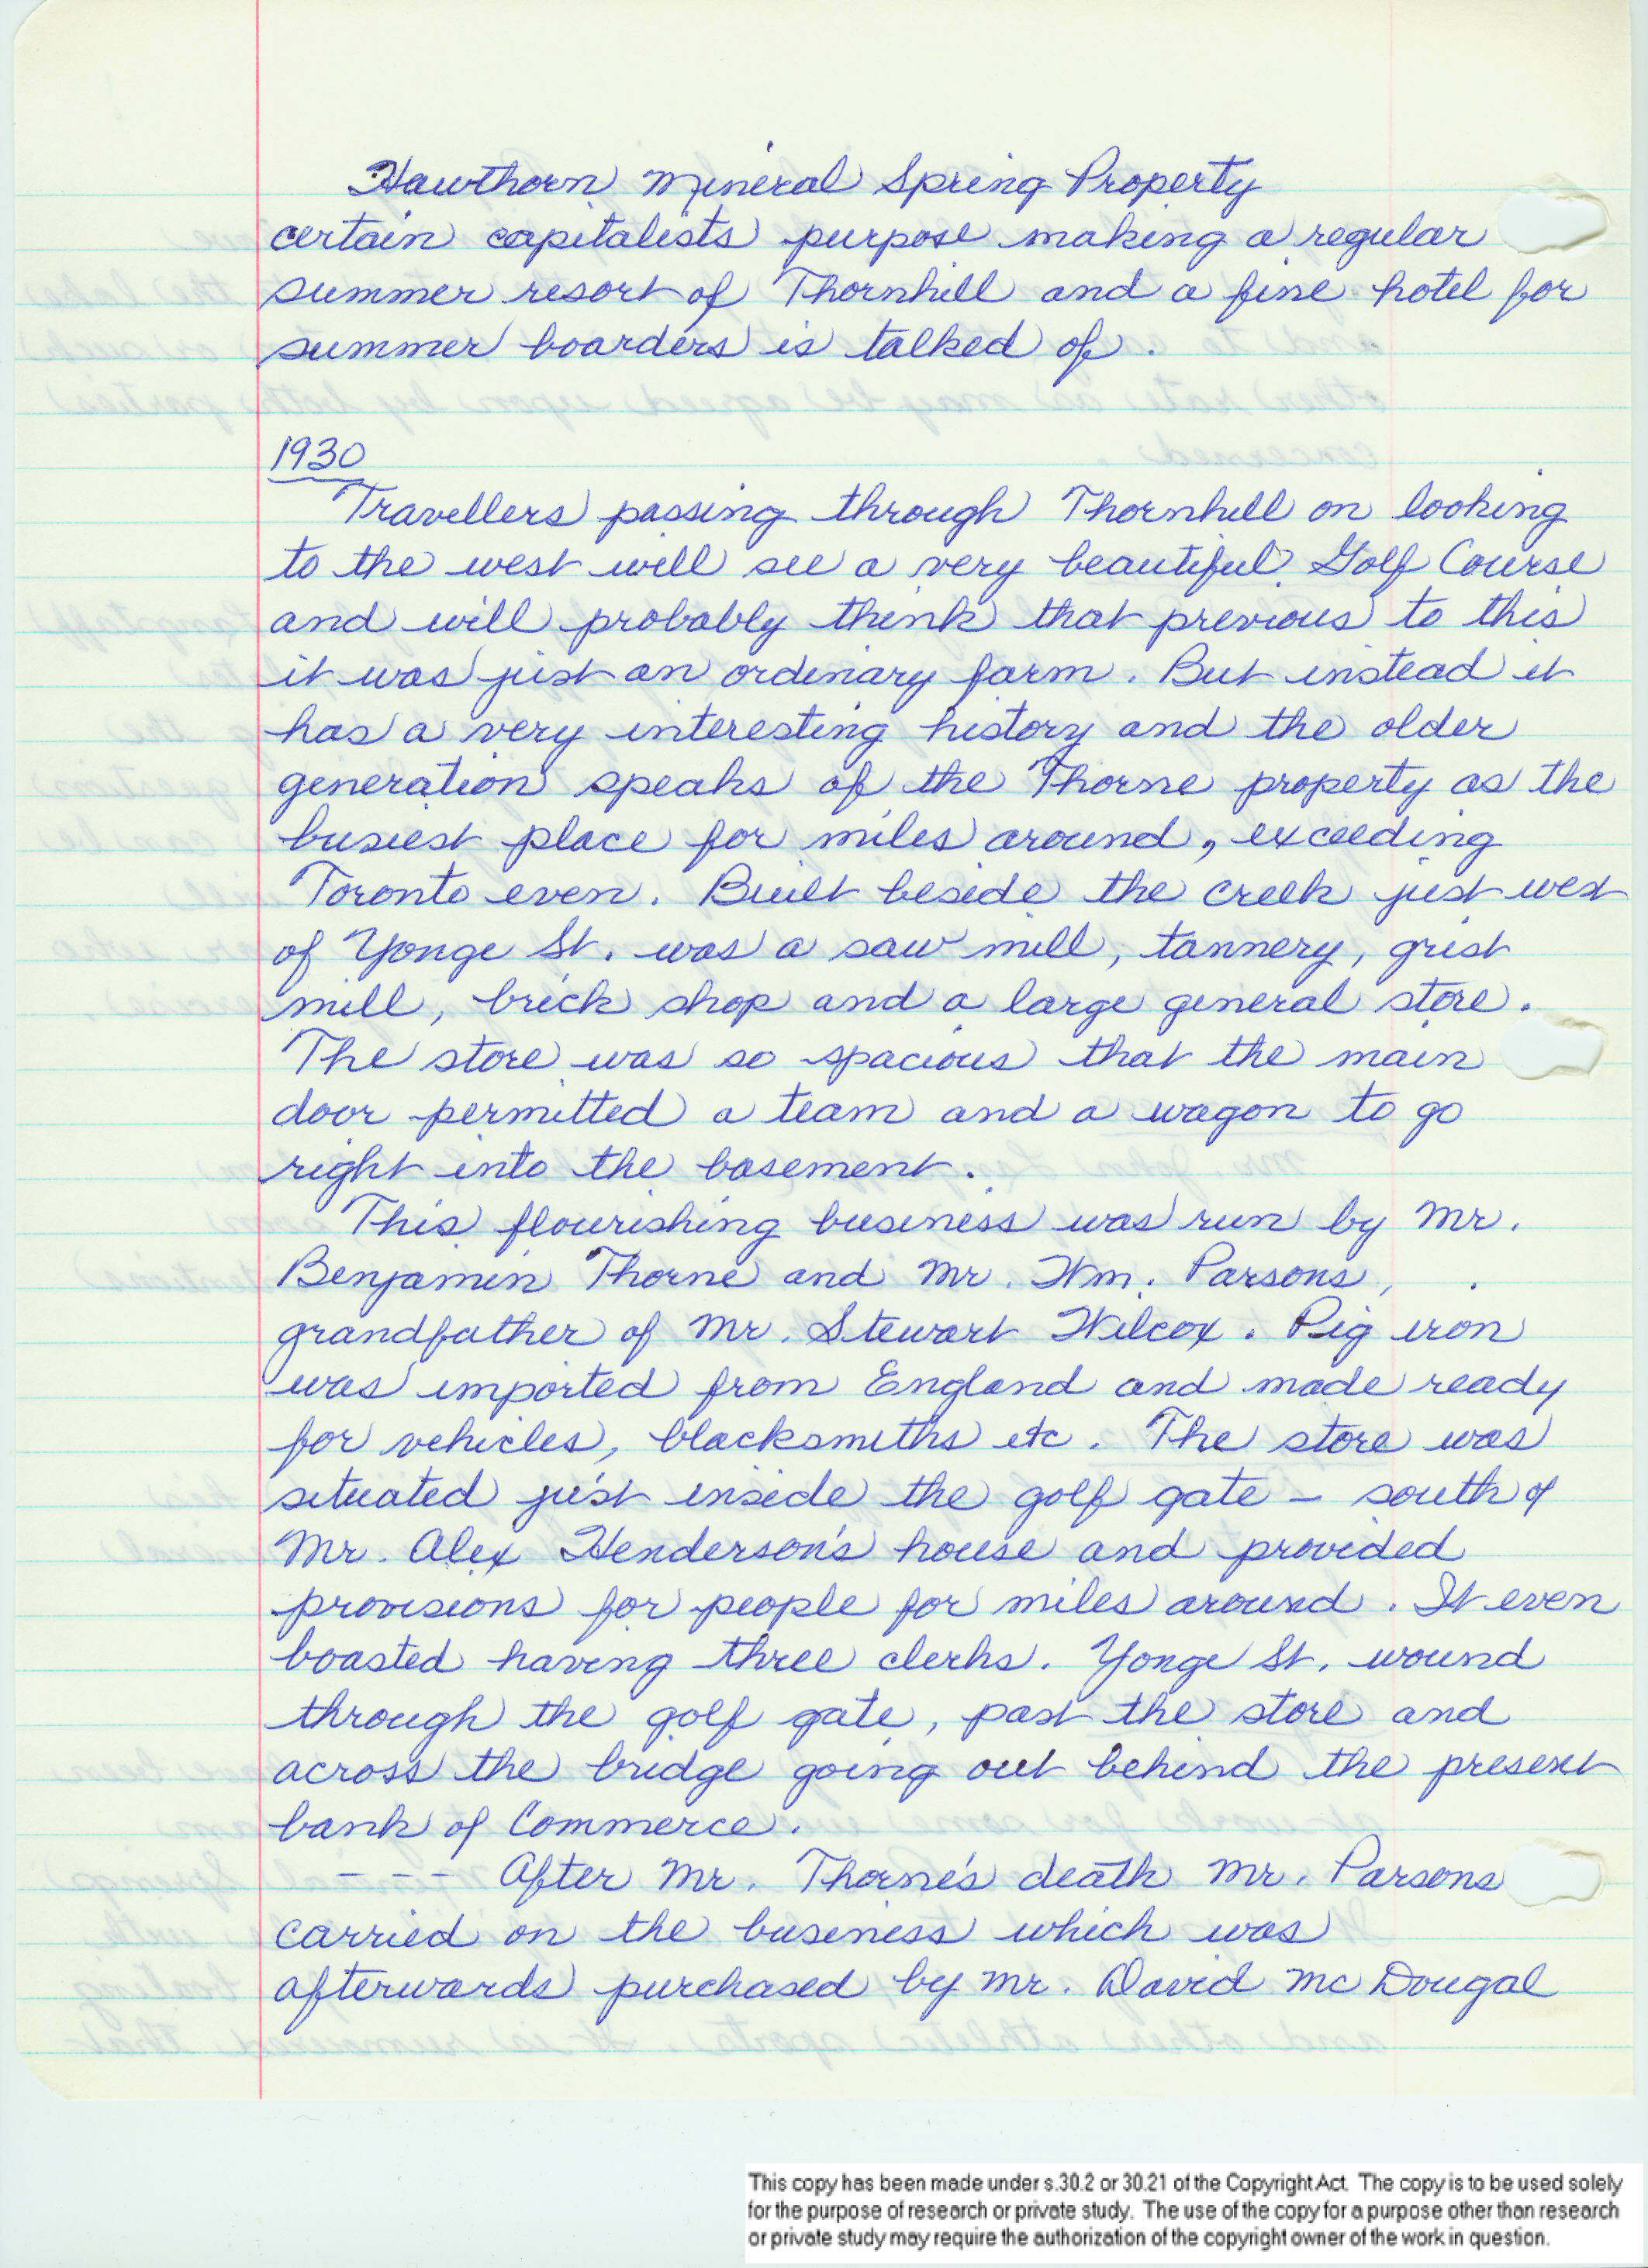 Hawthorn Mineral Spring Property
certain capitalists purpose making a regular
summer resort of Thornhill and a fine hotel for
summer boarders is talked of.
1930
Travellers passing through Thornhill on looking
to the west will see a very beautiful Golf Course
and will probably think that previous to this
it was just an ordinary farm. But instead it
has a very interesting history and the older
generation speaks of the Thorne property as the
busiest place for miles around, exceeding
Toronto even. Built beside the creek just west
of Yonge St. was a saw mill, tannery, grist
mill, brick shop and a large general store.
The store was so spacious that the main
door permitted a team and a wagon to go
right into the basement.
This flourishing business was run by Mr.
Benjamin Thorne and Mr. Wm. Parsons,
grandfather of Mr. Stewart Wilcox. Pig iron
was imported from England and made ready
for vehicles, blacksmiths etc. The store was
situated just inside the golf gate - south of
Mr. Alex Henderson's house and provided
provisions for people for miles around. It even
boasted having three clerks. Yonge St. wound
through the golf gate, past the store and
across the bridge going out behind the present
bank of Commerce.
- - - After Mr. Thorne's death Mr. Parsons
carried on the business which was
afterwards purchased by Mr. David McDougal
This copy has been made under s.30.2 or 30.21 of the Copyright Act. The copy is to be used solely
for the purpose of research or private study. The use of the copy for a purpose other than research
or private study may require the authorization of the copyright owner of the work in question.